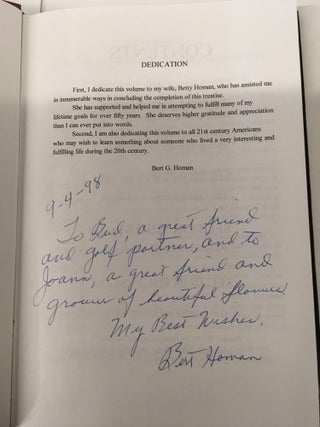 DEDICATION
First, I dedicate this volume to my wife, Betty Homan, who has assisted me
in innumerable ways in concluding the completion of this treatise.
She has supported and helped me in attempting to fulfill many of my
lifetime goals for over fifty years. She deserves higher gratitude and appreciation
than I can ever put into words.
Second, I am also dedicating this volume to all 21st century Americans
who may wish to learn something about someone who lived a very interesting and
fulfilling life during the 20th century.
Bert G. Homan
9-4-98
To Bud, a great friend
and golf partner, and to
Joann, a great friend and
grower of beautiful flowers
My Best Wishes,
Bert Homan